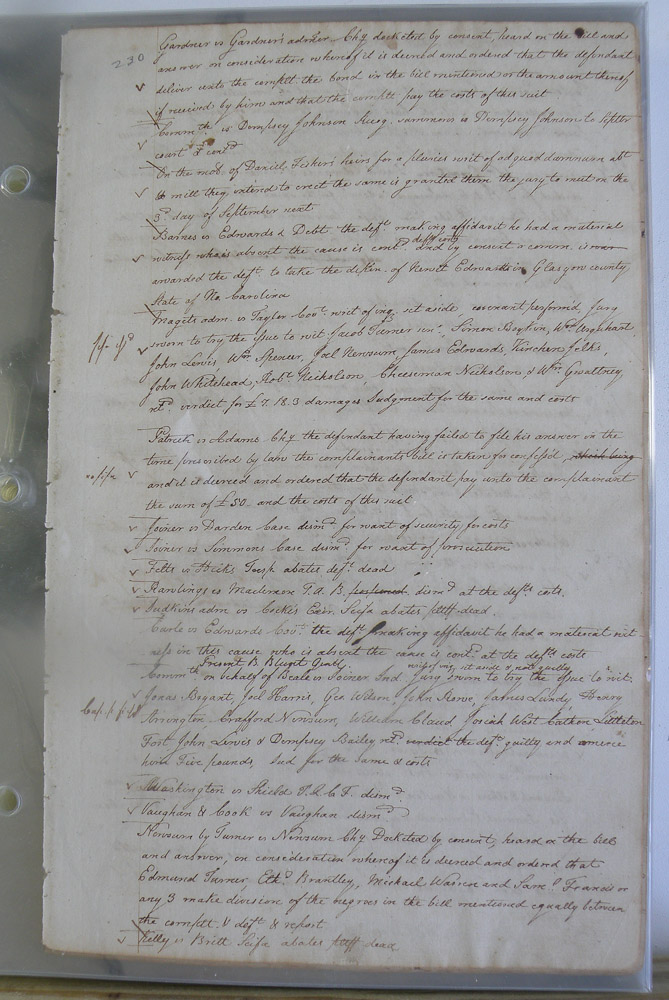 230
Gardner vs Gardner's admr Chy docketed by consent, heard on the bill and
answer on consideration whereof it is decreed and ordered that the defendant
deliver unto the complt. the bond in the bill mentioned or the amount thereof
if received by him and that the complt pay the costs of this suit
Commth vs Dempsey Johnson summons vs Dempsey Johnson to
court & contd
On the mo. of Daniel Fisher's heirs for a pluries writ of ad quod damnum abt
a mill they intend to erect the same is granted them the jury to meet on the
3d. day of September next
Barnes vs Edwards & Debt the deft making affidavit he had a material
witness who is absent the cause is contd. defts costs and by consent a comm. is
awarded the deft. to take the depon. of Newit Edwards in Glasgow county
State of No. Carolina
Magets adm. vs Taylor Covt. writ of inq. set aside covenant performd, Jury
fi fa
sworn to try the issue to wit Jacob Turner senr., Simon Boykin, Wm. Urquhart,
John Lewis, Wm. Spencer, Joel Newsum, James Edwards, Kinchen
John Whitehead, Robt. Nicholson, Cheeseman Nicholson, & Wm. Gwaltney
retd. verdict for £7.18.3 damages Judgment for the same and costs
Patrick vs Adams Chy the defendant having failed to file his answer in the
time prescribed by law the complainants bill is taken for confessd,
and it is decreed and ordered that the defendant pay unto the complainant
the sum of £50 and the costs of this suit
Joiner vs Darden Case dismd. for want of security for costs
Joiner vs Simmons Case dismd. for want of prosecution
Felts vs Hicks Tresp abates deft. dead
Rawlings vs Maclemore T.A.B. dismd at the defts costs.
Judkins adm vs Cocke's Exor. Scifa abates pltff dead.
Earle vs Edwards Covt. the deft. making affidavit he had a material wit-
ness in this cause who is absent the cause is contd. at the defts costs
Present B. Blunt Gentl.
writ of inq. set aside & not guilty
Commth on behalf of Beale vs Joiner Ind. Jury sworn to try the issue to wit.
Jonas Bryant, Joel Harris, Geo Wilson, John Rowe, James Lundy, Henry
Arrington, Crafford Newsum, William Claud, Josiah West Cathon, Littleton
Fort, John Lewis & Dempsey Bailey retd. verdict the deft. guilty and amerce
him Five pounds, Jud for the same & costs
Washington vs Shield T.A.C.F. dismd.
Vaughan & Cook vs Vaughan dismd
Newsum by Turner vs Newsum Chy Docketed by consent, heard on the bill
and answer, on consideration whereof it is decreed and ordered that
Edmund Turner, Ethd. Brantley, Michael Warren and Saml. Francis or
any 3 make division of the negroes in the bill mentioned equally between
the complt. & deft & report
Kelly vs Britt Scifa abates pltff dead